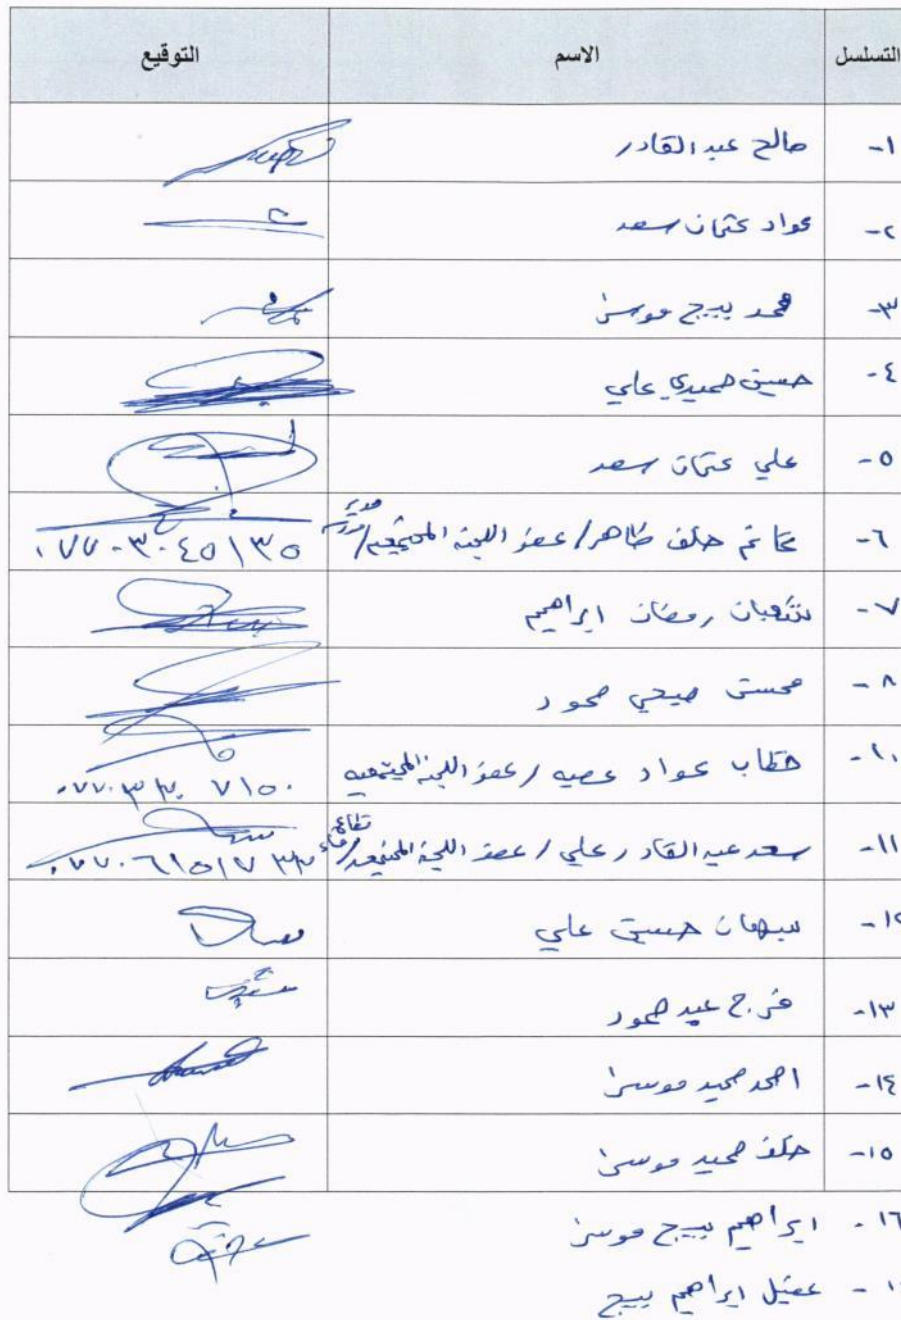 التسلسل الاسم التوقيع
١- صالح عبد القادر
٢- عواد عثمان سعد
٣- محمد بييج موسى
٤- حسين حميدي علي
٥- علي عثمان سعد
٦- غانم خلف ظاهر / عضو اللجنة المجتمعيه / مدير ٠٧٧٠٣٠٤٥١٣٥
٧- شعبان رمضان ابراهيم
٨- محسن صبحي محمود
١٠- خطاب عواد عصيه / عضو اللجنة المجتمعيه ٠٧٧٠٣٣٢٠٧١٥٠
١١- سعد عبد القادر علي / عضو اللجنة المجتمعيه / ٠٧٧٠٦١٥١٧٣٣
١٢- سبهان حسين علي
١٣- فرج عبد حمود
١٤- احمد حميد موسى
١٥- خلف حميد موسى
١٦- ابراهيم بييج موسى
- عقيل ابراهيم بييج